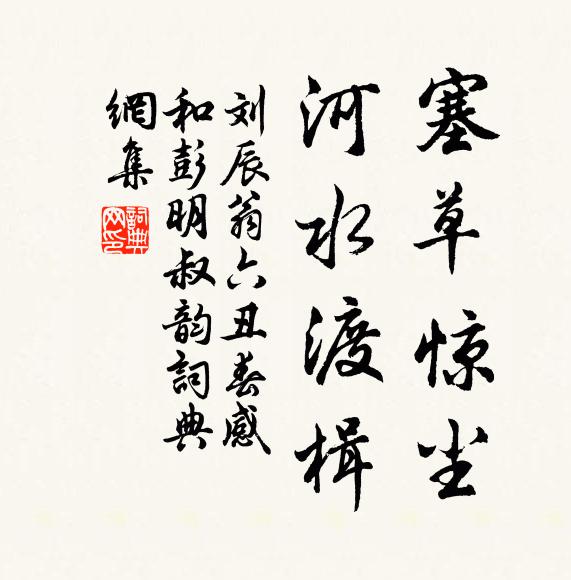 塞草惊尘
河水渡楫
刘辰翁六丑春感
和彭明叔韵詞典
網集
詞典
网印